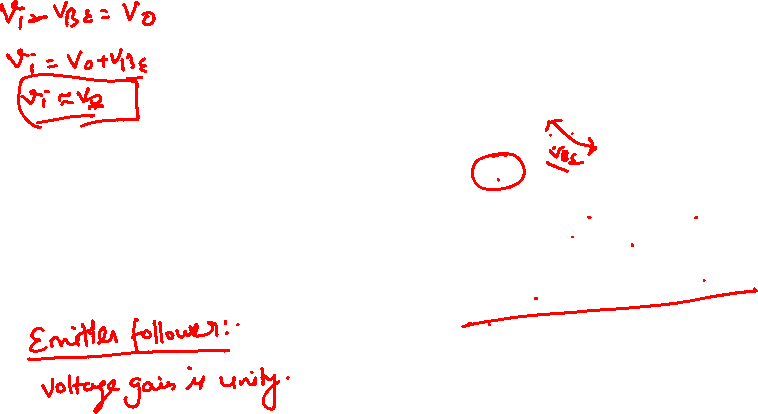 Vi - VBE = VO
Vi = VO + VBE
Vi ≈ VO
VBE
Emitter follower:
Voltage gain is unity.